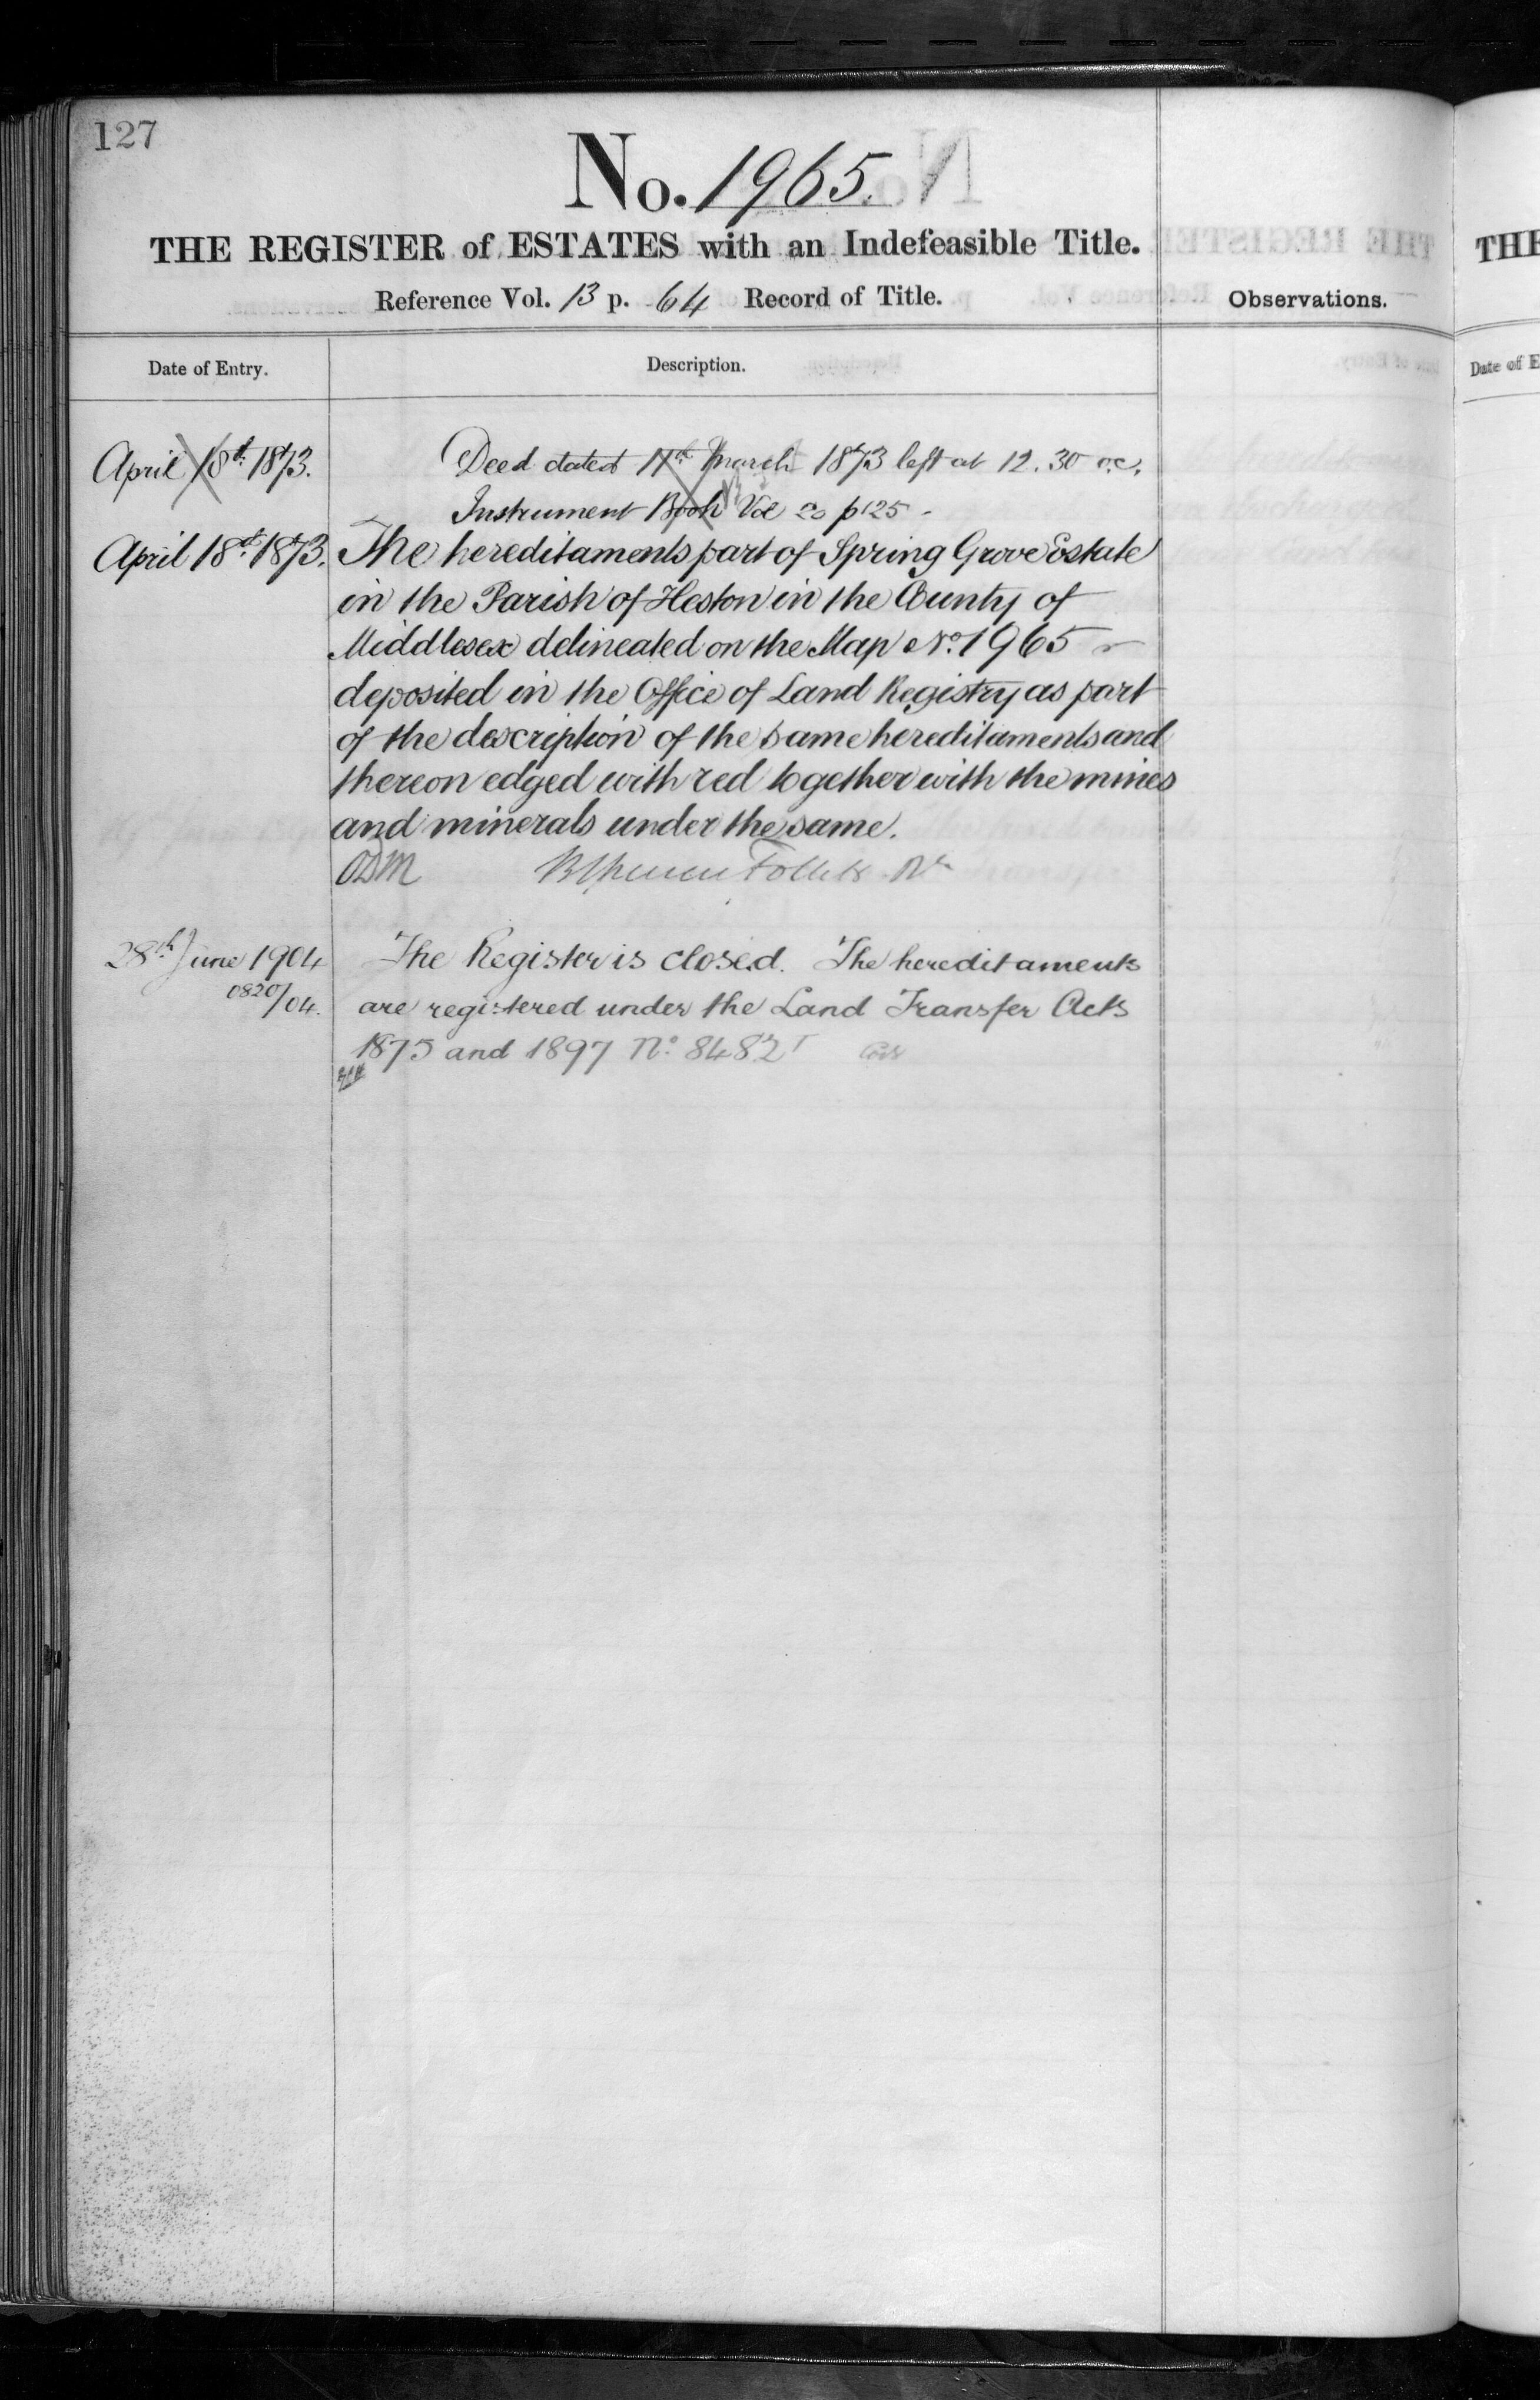 127
No. 1965.
THE REGISTER of ESTATES with an Indefeasible Title.
Reference Vol. 13 p. 64 Record of Title.
Observations.
THE
Date of Entry.
Description.
Date of E
April 18th 1873.
Deed dated 17th March 1873 left at 12.30 o.c.
Instrument Book Vol 20 p 125 -
April 18th 1873.
The hereditaments part of Spring Grove Estate
in the Parish of Heston in the County of
Middlesex delineated on the Map No. 1965
deposited in the Office of Land Registry as part
of the description of the same hereditaments and
thereon edged with red together with the mines
and minerals under the same.
ODM
Follett
28th June 1904
0820/04.
The Register is closed. The hereditaments
are registered under the Land Transfer Acts
1875 and 1897 No. 8482